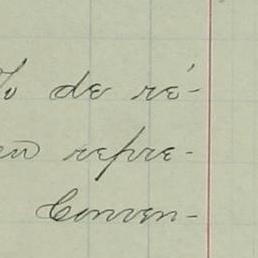 de ré-
en repre-
Conven-